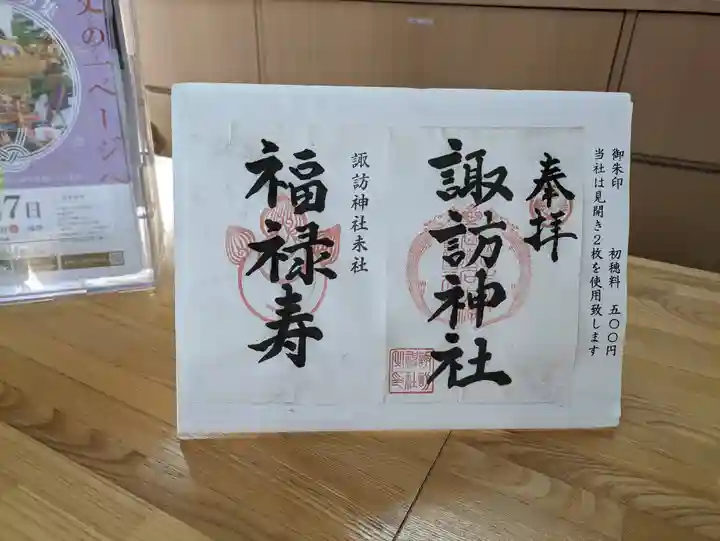 御朱印 初穂料 五〇〇円
当社は見開き2枚を使用致します
奉拝
諏訪神社
諏訪神社末社
福禄寿
の一ページ
7日